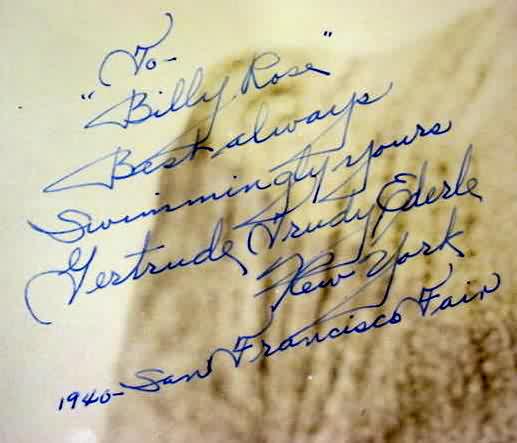 To-
"Billy Rose"
Best always
Swimmingly yours
Gertrude Trudy Ederle
New York
1940-San Francisco Fair